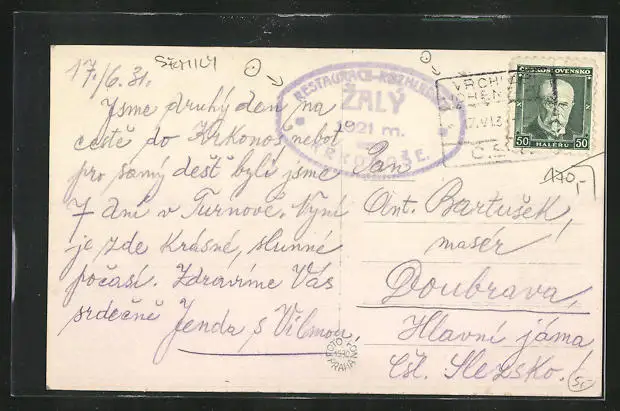 17./6.31.
Jsme druhý den na
cestě do Krkonoš neboť
pro samý déšť byli jsme
7 dní v Turnově. Nyní
je zde krásné, slunné
počasí. Zdravíme Vás
srdečně Jenda s Vilmou!
RESTAURACE-ROZHLEDNA
ŽALÝ
1021 m.
KRKONOŠE.
VRCHL
7.VI.3
Č.S.
ČESKOSLOVENSKO
50 50
HALÉŘŮ
170,-
Pan
Ant. Bartušek,
masér
Doubrava,
Hlavní jáma
Čsl. Slezsko.
FOTO
PRAHA